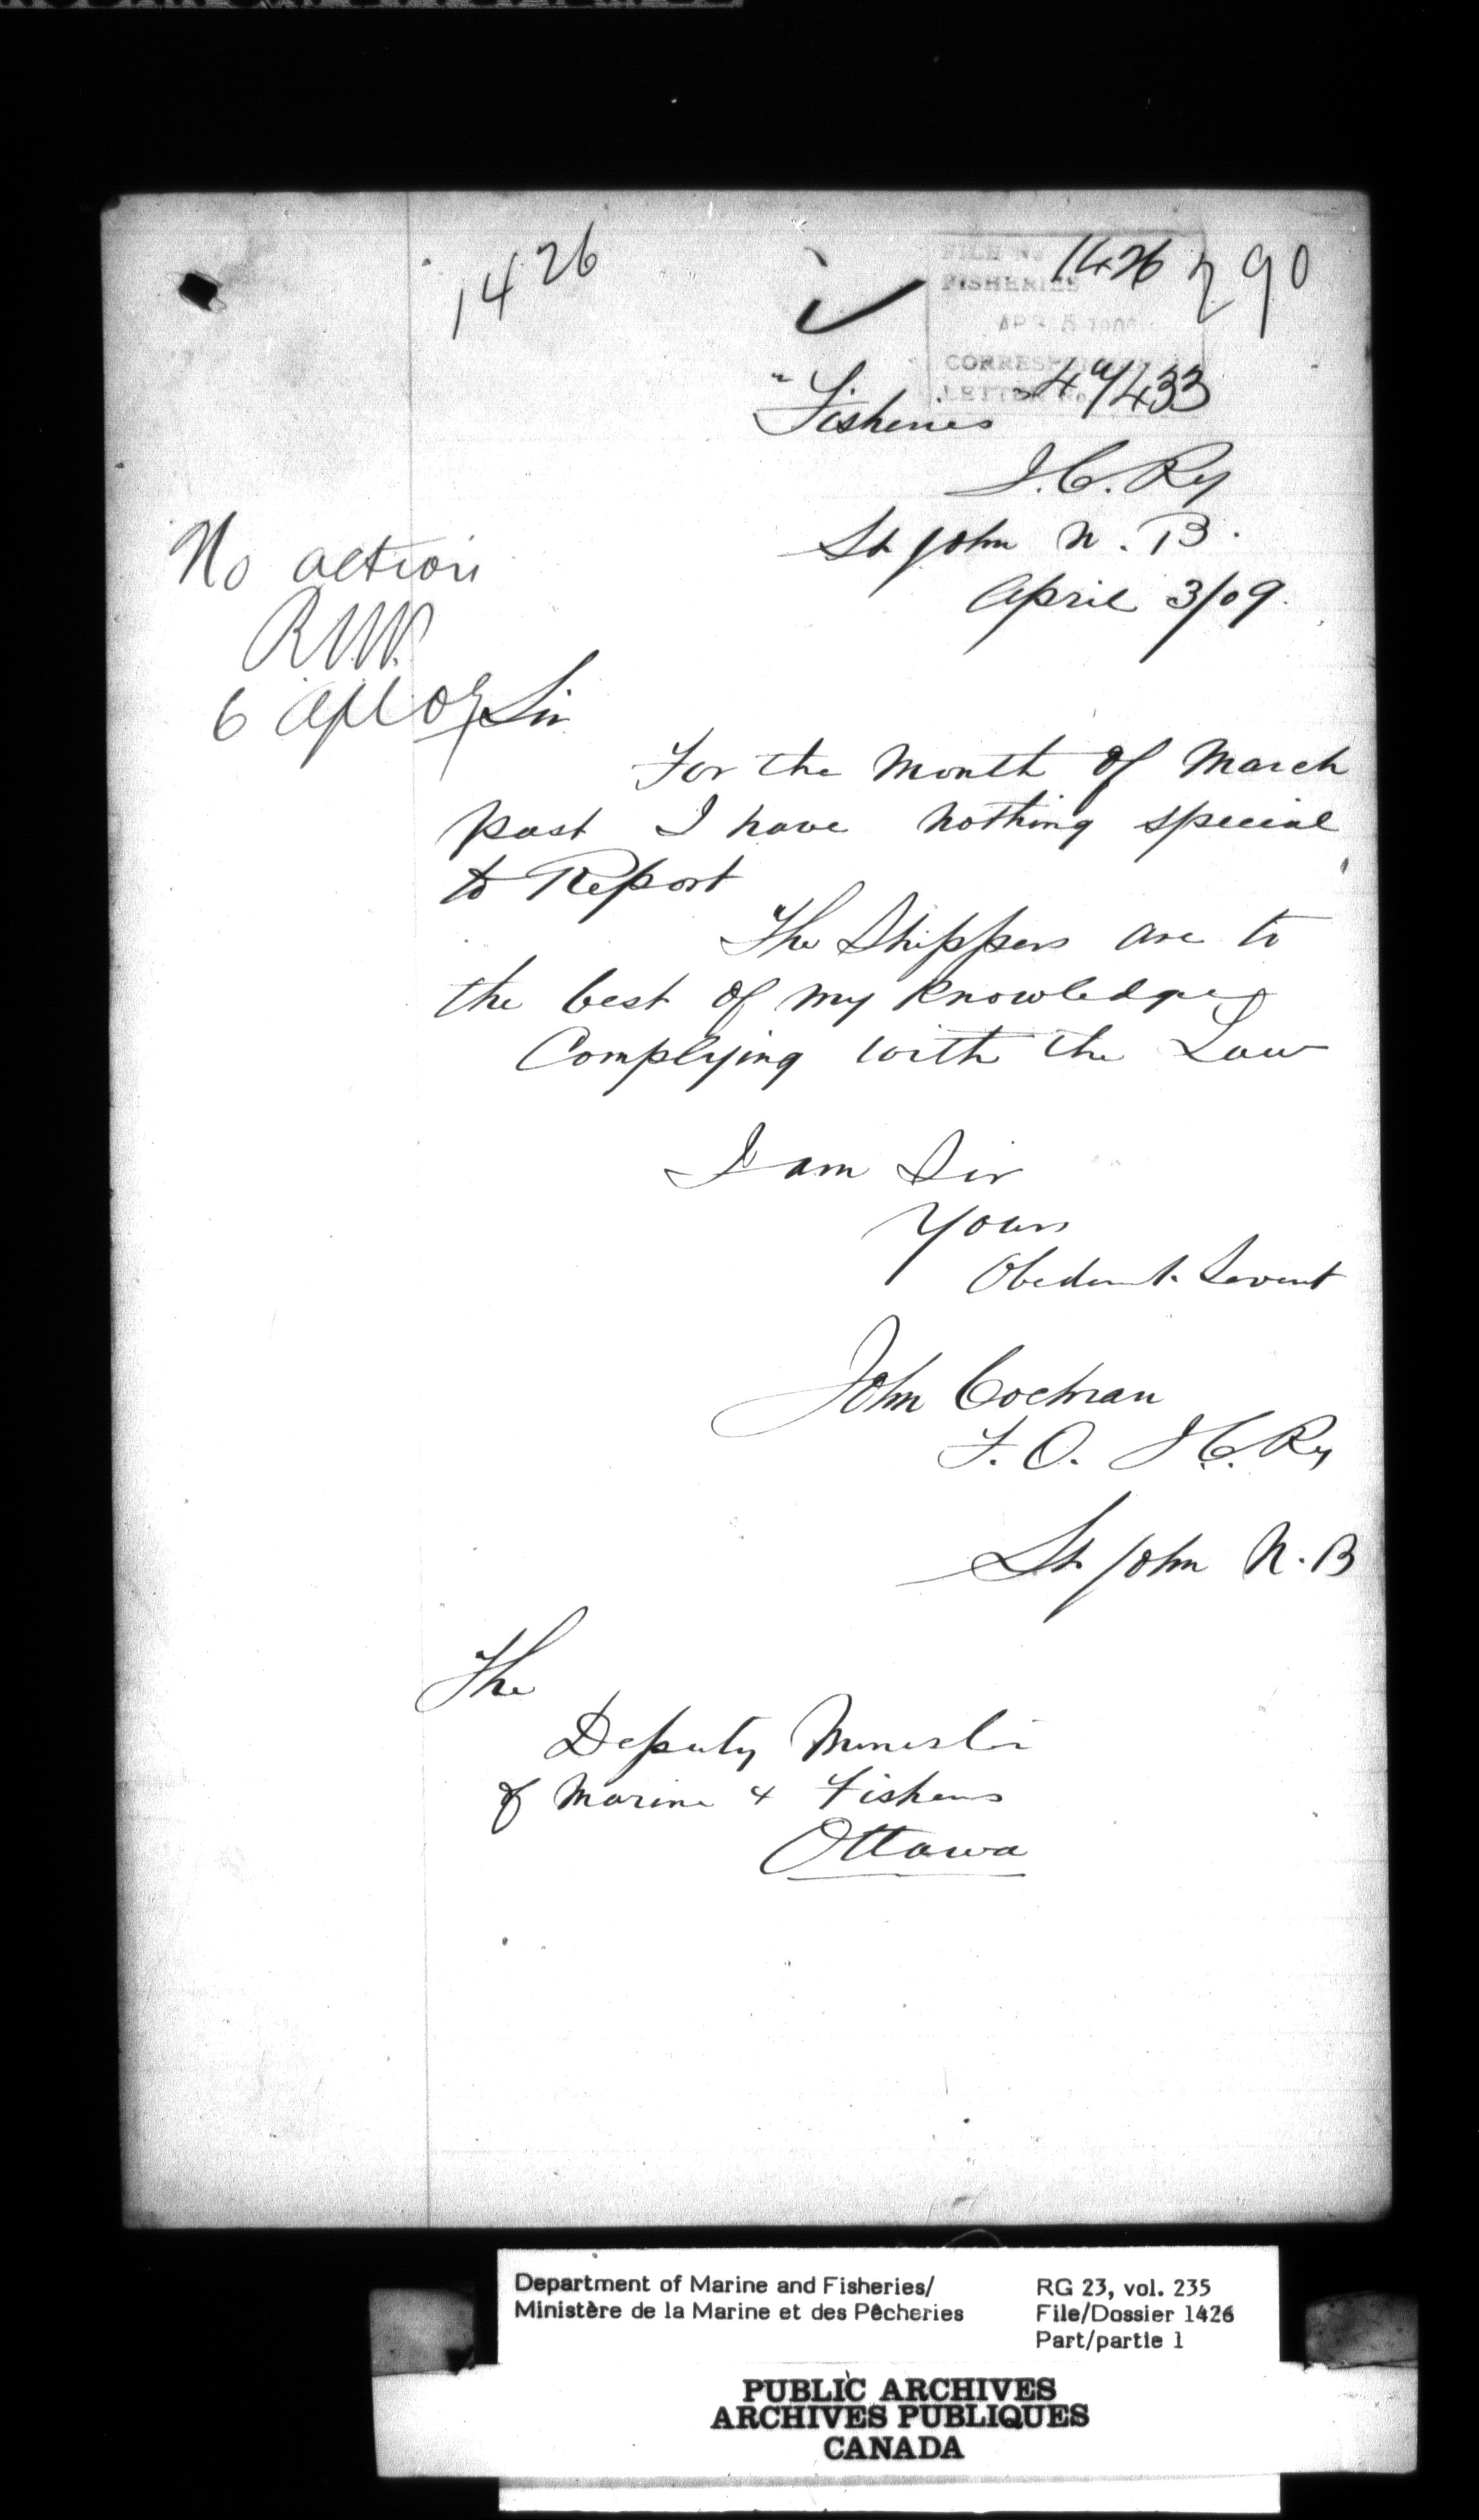 1426
FILE No 1426
290
FISHERIES
APR 5 1909
CORRESPONDENCE
LETTER No 433
"Fisheries
I.C. Ry
St John N.B.
April 3/09.
No action
R.N.V.
6 Apl 09
Sir
For the Month of March
past I have nothing special
to Report
The Shippers are to
the best of my Knowledge
Complying with the Law
I am Sir
Yours
Obedient Servent
John Cochran
F.O. I.C. Ry
St John N.B
The
Deputy Minister
of Marine & Fisheries
Ottawa
Department of Marine and Fisheries/
Ministère de la Marine et des Pêcheries
RG 23, vol. 235
File/Dossier 1426
Part/partie 1
PUBLIC ARCHIVES
ARCHIVES PUBLIQUES
CANADA